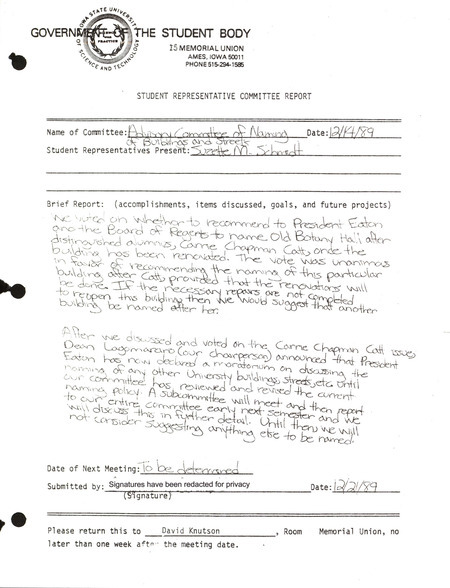 GOVERNMENT OF THE STUDENT BODY
IOWA STATE UNIVERSITY
OF SCIENCE AND TECHNOLOGY
15 MEMORIAL UNION
AMES, IOWA 50011
PHONE 515-294-1585
STUDENT REPRESENTATIVE COMMITTEE REPORT
Name of Committee: Advisory Committee of Naming Date: 12/14/89
of Buildings and Streets
Student Representatives Present: Suzette M. Schmidt
Brief Report: (accomplishments, items discussed, goals, and future projects)
We voted on whether to recommend to President Eaton
and the Board of Regents to name Old Botany Hall after
distinguished alumnus, Carrie Chapman Catt, once the
building has been renovated. The vote was unanimous
in favor of recommending the naming of this particular
building after Catt, provided that the renovations will
be done. If the necessary repairs are not completed
to reopen this building then we would suggest that another
building be named after her.
After we discussed and voted on the Carrie Chapman Catt issue,
Dean Lagomarcino (our chairperson) announced that President
Eaton has now declared a moratorium on discussing the
naming of any other University buildings, streets, etc. until
our committee has reviewed and revised the current
naming policy. A subcommittee will meet and then report
to our entire committee early next semester and we
will discuss this in further detail. Until then we will
not consider suggesting anything else to be named.
Date of Next Meeting: To be determined
Submitted by: Signatures have been redacted for privacy Date: 12/21/89
(Signature)
Please return this to David Knutson, Room Memorial Union, no
later than one week after the meeting date.